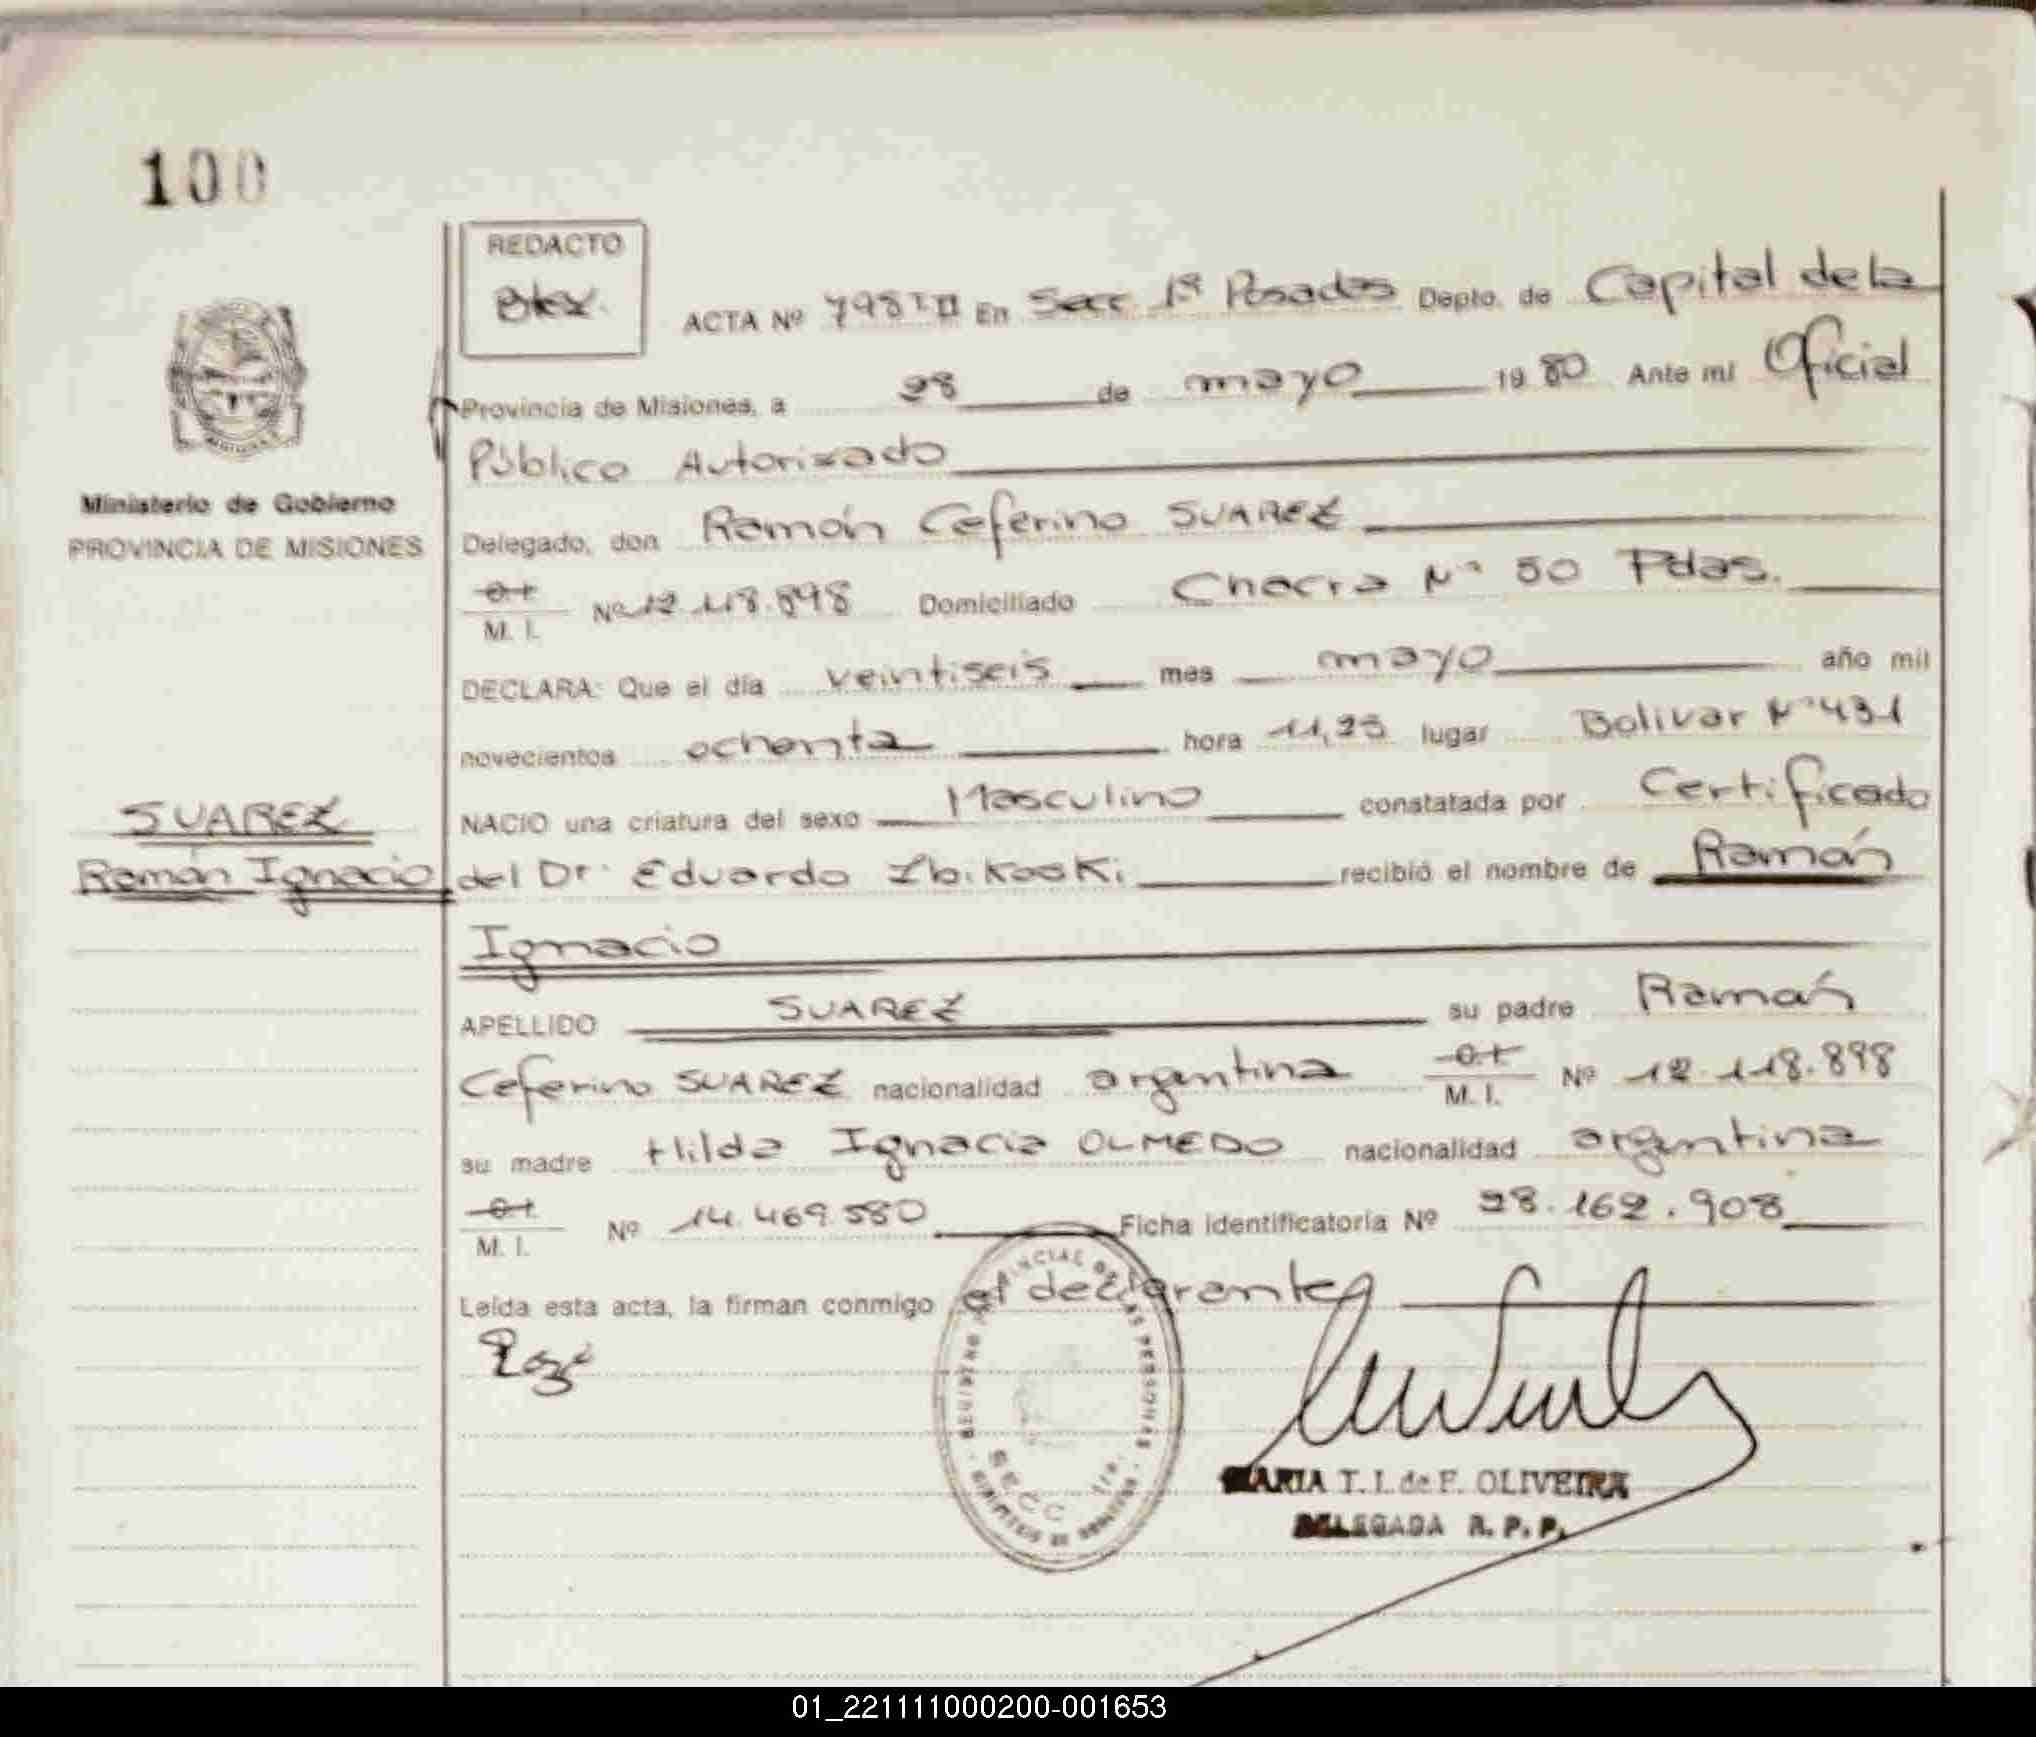 100
REDACTO
ACTA Nº 798 TII En Secc 1ª Posadas Depto. de Capital de la
Provincia de Misiones, a 28 de mayo 19 80 Ante mí Oficial
Público Autorizado
Ministerio de Gobierno
PROVINCIA DE MISIONES
Delegado, don Ramón Ceferino SUAREZ
M. I. Nº 12.118.898 Domiciliado Chacra Nº 50 Pdas.
DECLARA: Que el día veintiseis mes mayo año mil
novecientos ochenta hora 11,25 lugar Bolivar Nº 431
NACIO una criatura del sexo Masculino constatada por Certificado
SUAREZ
Ramón Ignacio
del Dr. Eduardo recibió el nombre de Ramón
Ignacio
APELLIDO SUAREZ su padre Ramón
Ceferino SUAREZ nacionalidad argentina M. I. Nº 12.118.898
su madre Hilda Ignacia OLMEDO nacionalidad argentina
M. I. Nº 14.469.580 Ficha identificatoria Nº 28.162.908
Leída esta acta, la firman conmigo el declarante
MARIA T. I. de F. OLIVEIRA
DELEGADA R. P. P.
01_221111000200-001653